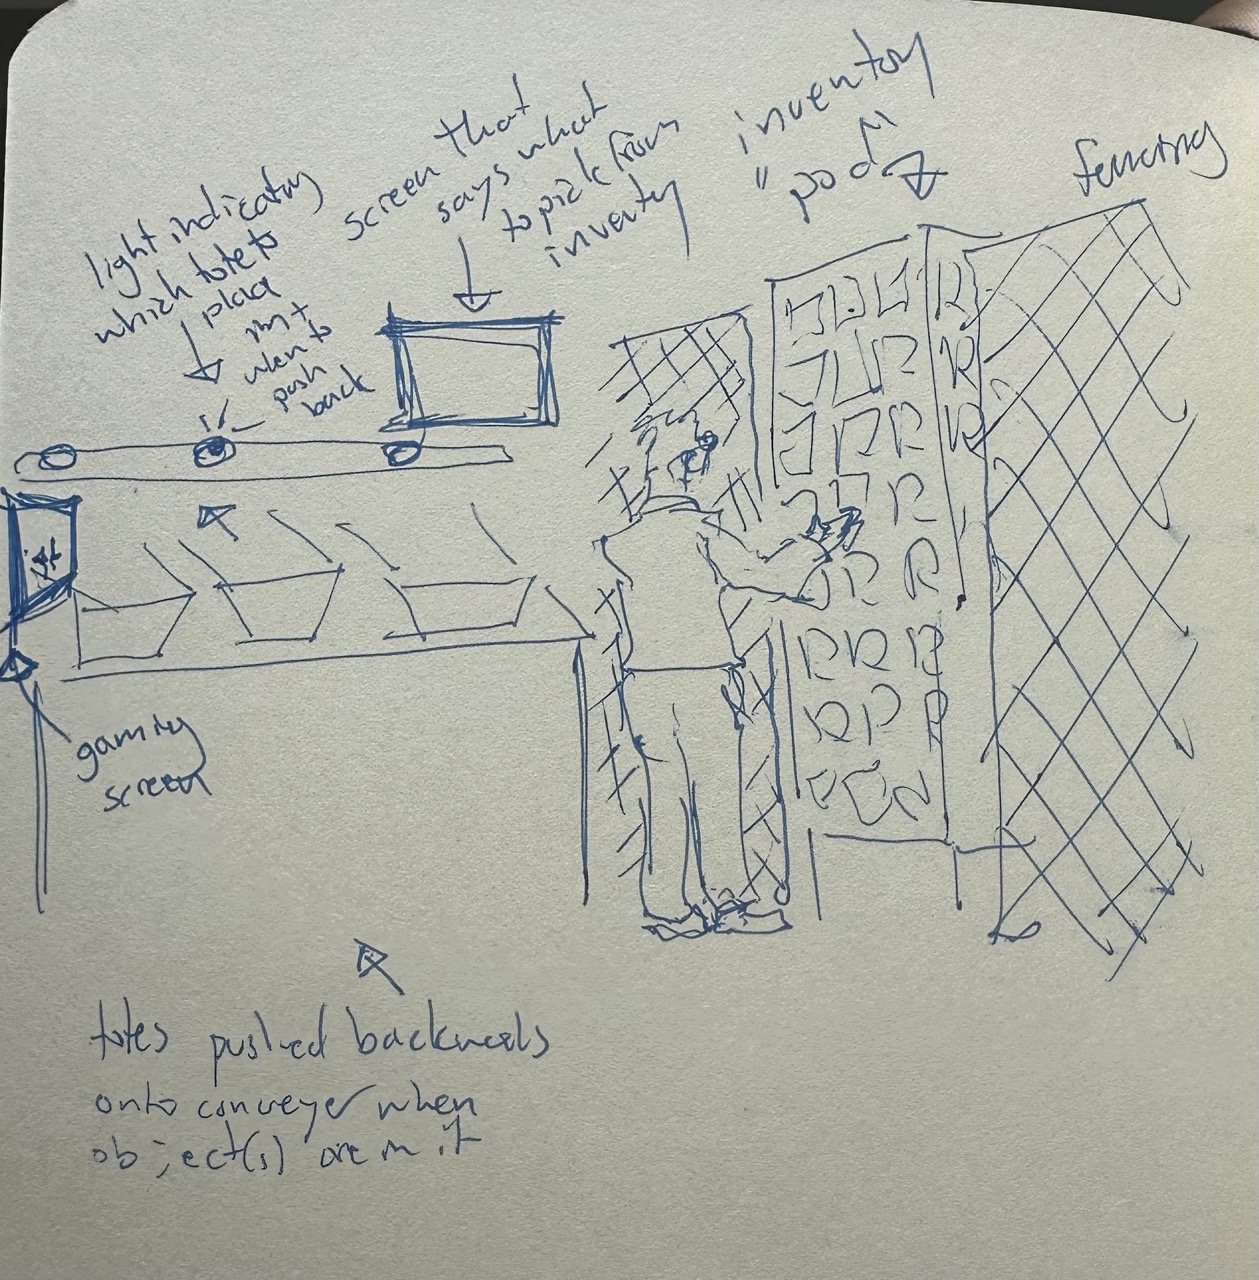 light indicating
which tote to
place
in +
when to
push
back
screen that
says what
to pick from
inventory
inventory
"pod"
fencing
gaming
screen
totes pushed backwards
onto conveyer when
object(s) are in it